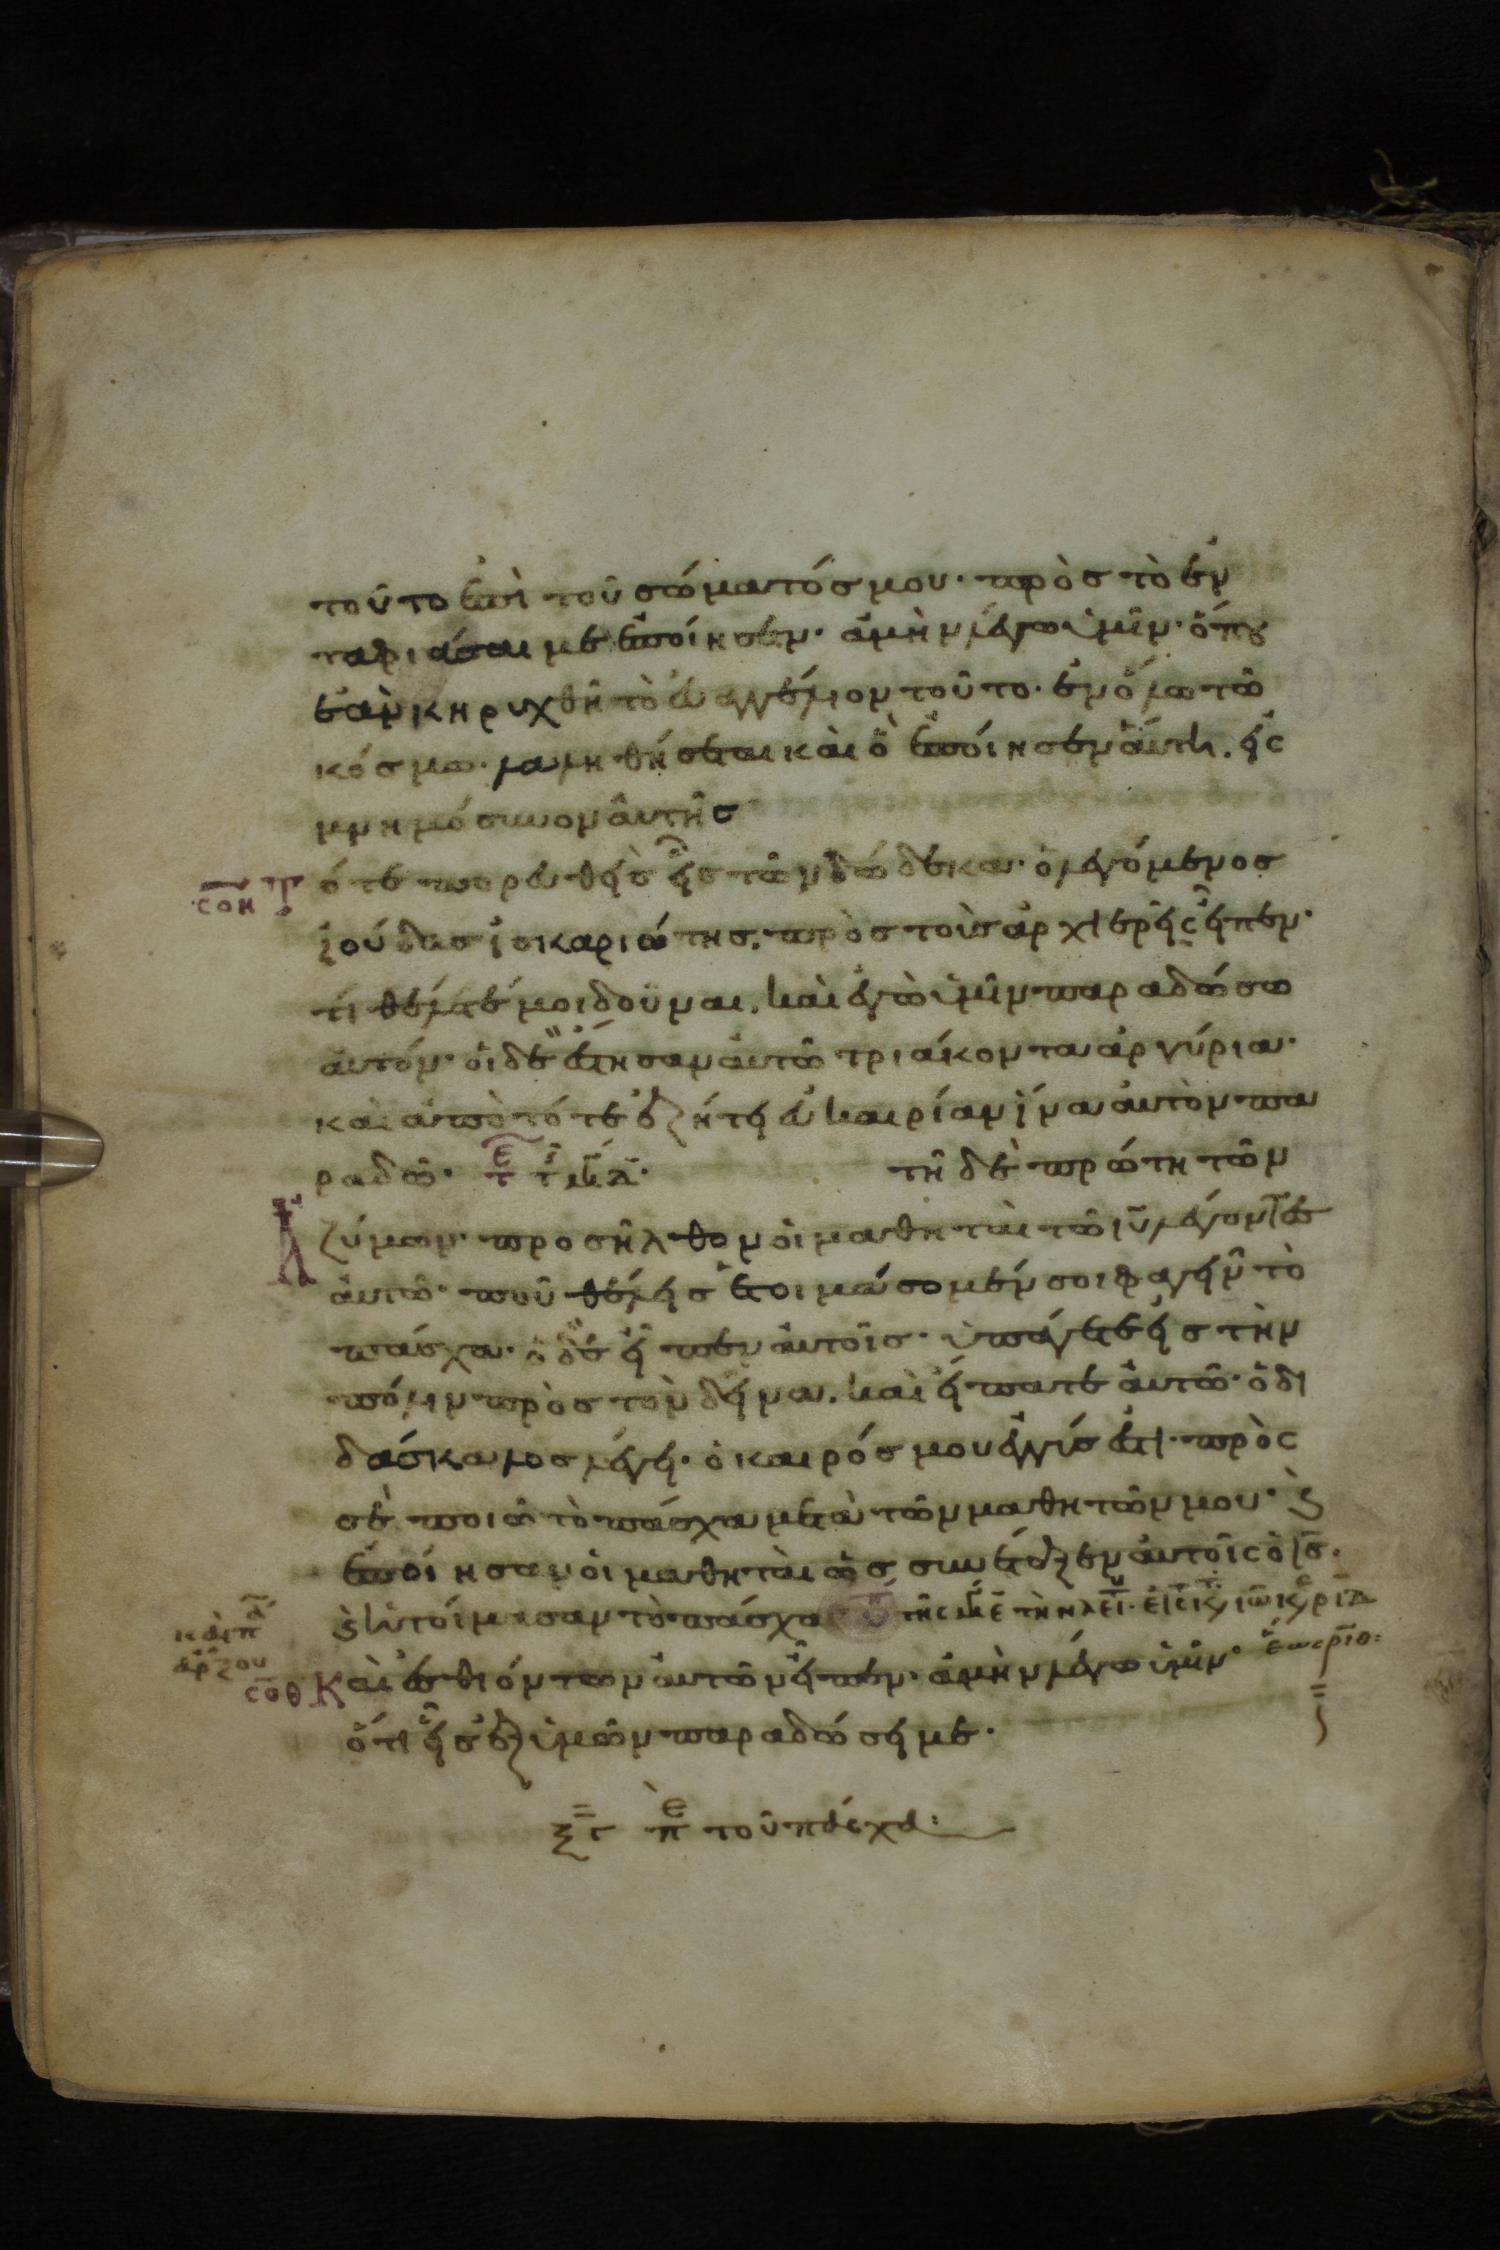 τοῦτο ἐπὶ τοῦ σώματός μου· πρὸς τὸ ἐν
ταφιάσαι με ἐποίησεν· ἀμὴν λέγω ὑμῖν· ὅπου
ἐὰν κηρυχθῆ τὸ εὐαγγέλιον τοῦτο· ἐν ὅλω τῶ
κόσμω· λαληθήσεται καὶ ὃ ἐποίησεν αὕτη. εἰς
μνημόσυνον αὐτῆς
σοη Τ ότε πορευθεὶς εἷς τῶν δώδεκα· ὁ λεγόμενος
ἰούδας ἰσκαριώτης· πρὸς τοὺς ἀρχιερεῖς εἶπεν·
τί θέλετέ μοι δοῦναι. καὶ ἐγὼ ὑμῖν παραδώσω
αὐτόν· οἱ δὲ ἔστησαν αὐτῶ τριάκοντα ἀργύρια·
καὶ ἀπὸ τότε ἐζήτει εὐκαιρίαν ἵνα αὐτὸν πα
ραδῶ· τῆ δὲ πρώτη τῶν
Α ζύμων· προσῆλθον οἱ μαθηταὶ τῶ ιυ λέγοντες
αὐτῶ· ποῦ θέλεις ἑτοιμάσομέν σοι φαγεῖν τὸ
πάσχα· ὁ δὲ εἶπεν αὐτοῖς· ὑπάγετε εἰς τὴν
πόλιν πρὸς τὸν δεῖνα. καὶ εἴπατε αὐτῶ· ὁ δι
δάσκαλος λέγει· ὁ καιρός μου ἐγγύς ἐστι· πρὸς
σὲ ποιῶ τὸ πάσχα μετὰ τῶν μαθητῶν μου· ϗ
ἐποίησαν οἱ μαθηταὶ ὡς συνέταξεν αὐτοῖς ὁ ις·
ϗ ἡτοίμασαν τὸ πάσχα
σοθ Καὶ ἐσθιόντων αὐτῶν εἶπεν· ἀμὴν λέγω ὑμῖν·
ὅτι εἷς ἐξ ὑμῶν παραδώσει με·
τοῦ πάσχα: